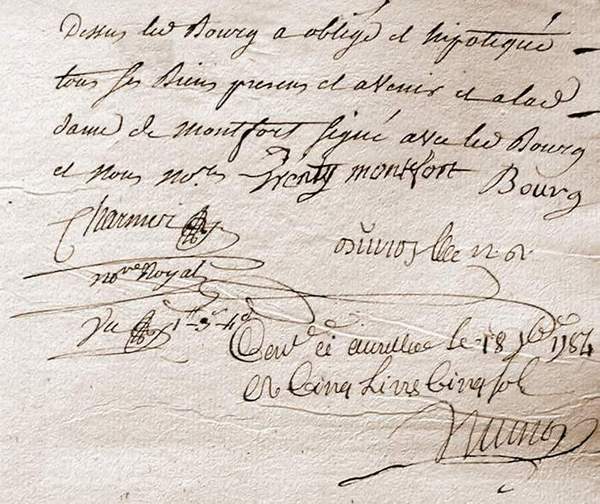 Dessus led Bourg a obligé et hipotequé
tous ses Biens presens et avenir et alad
dame de montfort signé avec led Bourg
et nous nores montfort Bourg
Charmier
nore Royal
Vu 1tt - 3s - 4d
Conlé a aurillac le 18 1784
et Cinq Livres Cinq sols